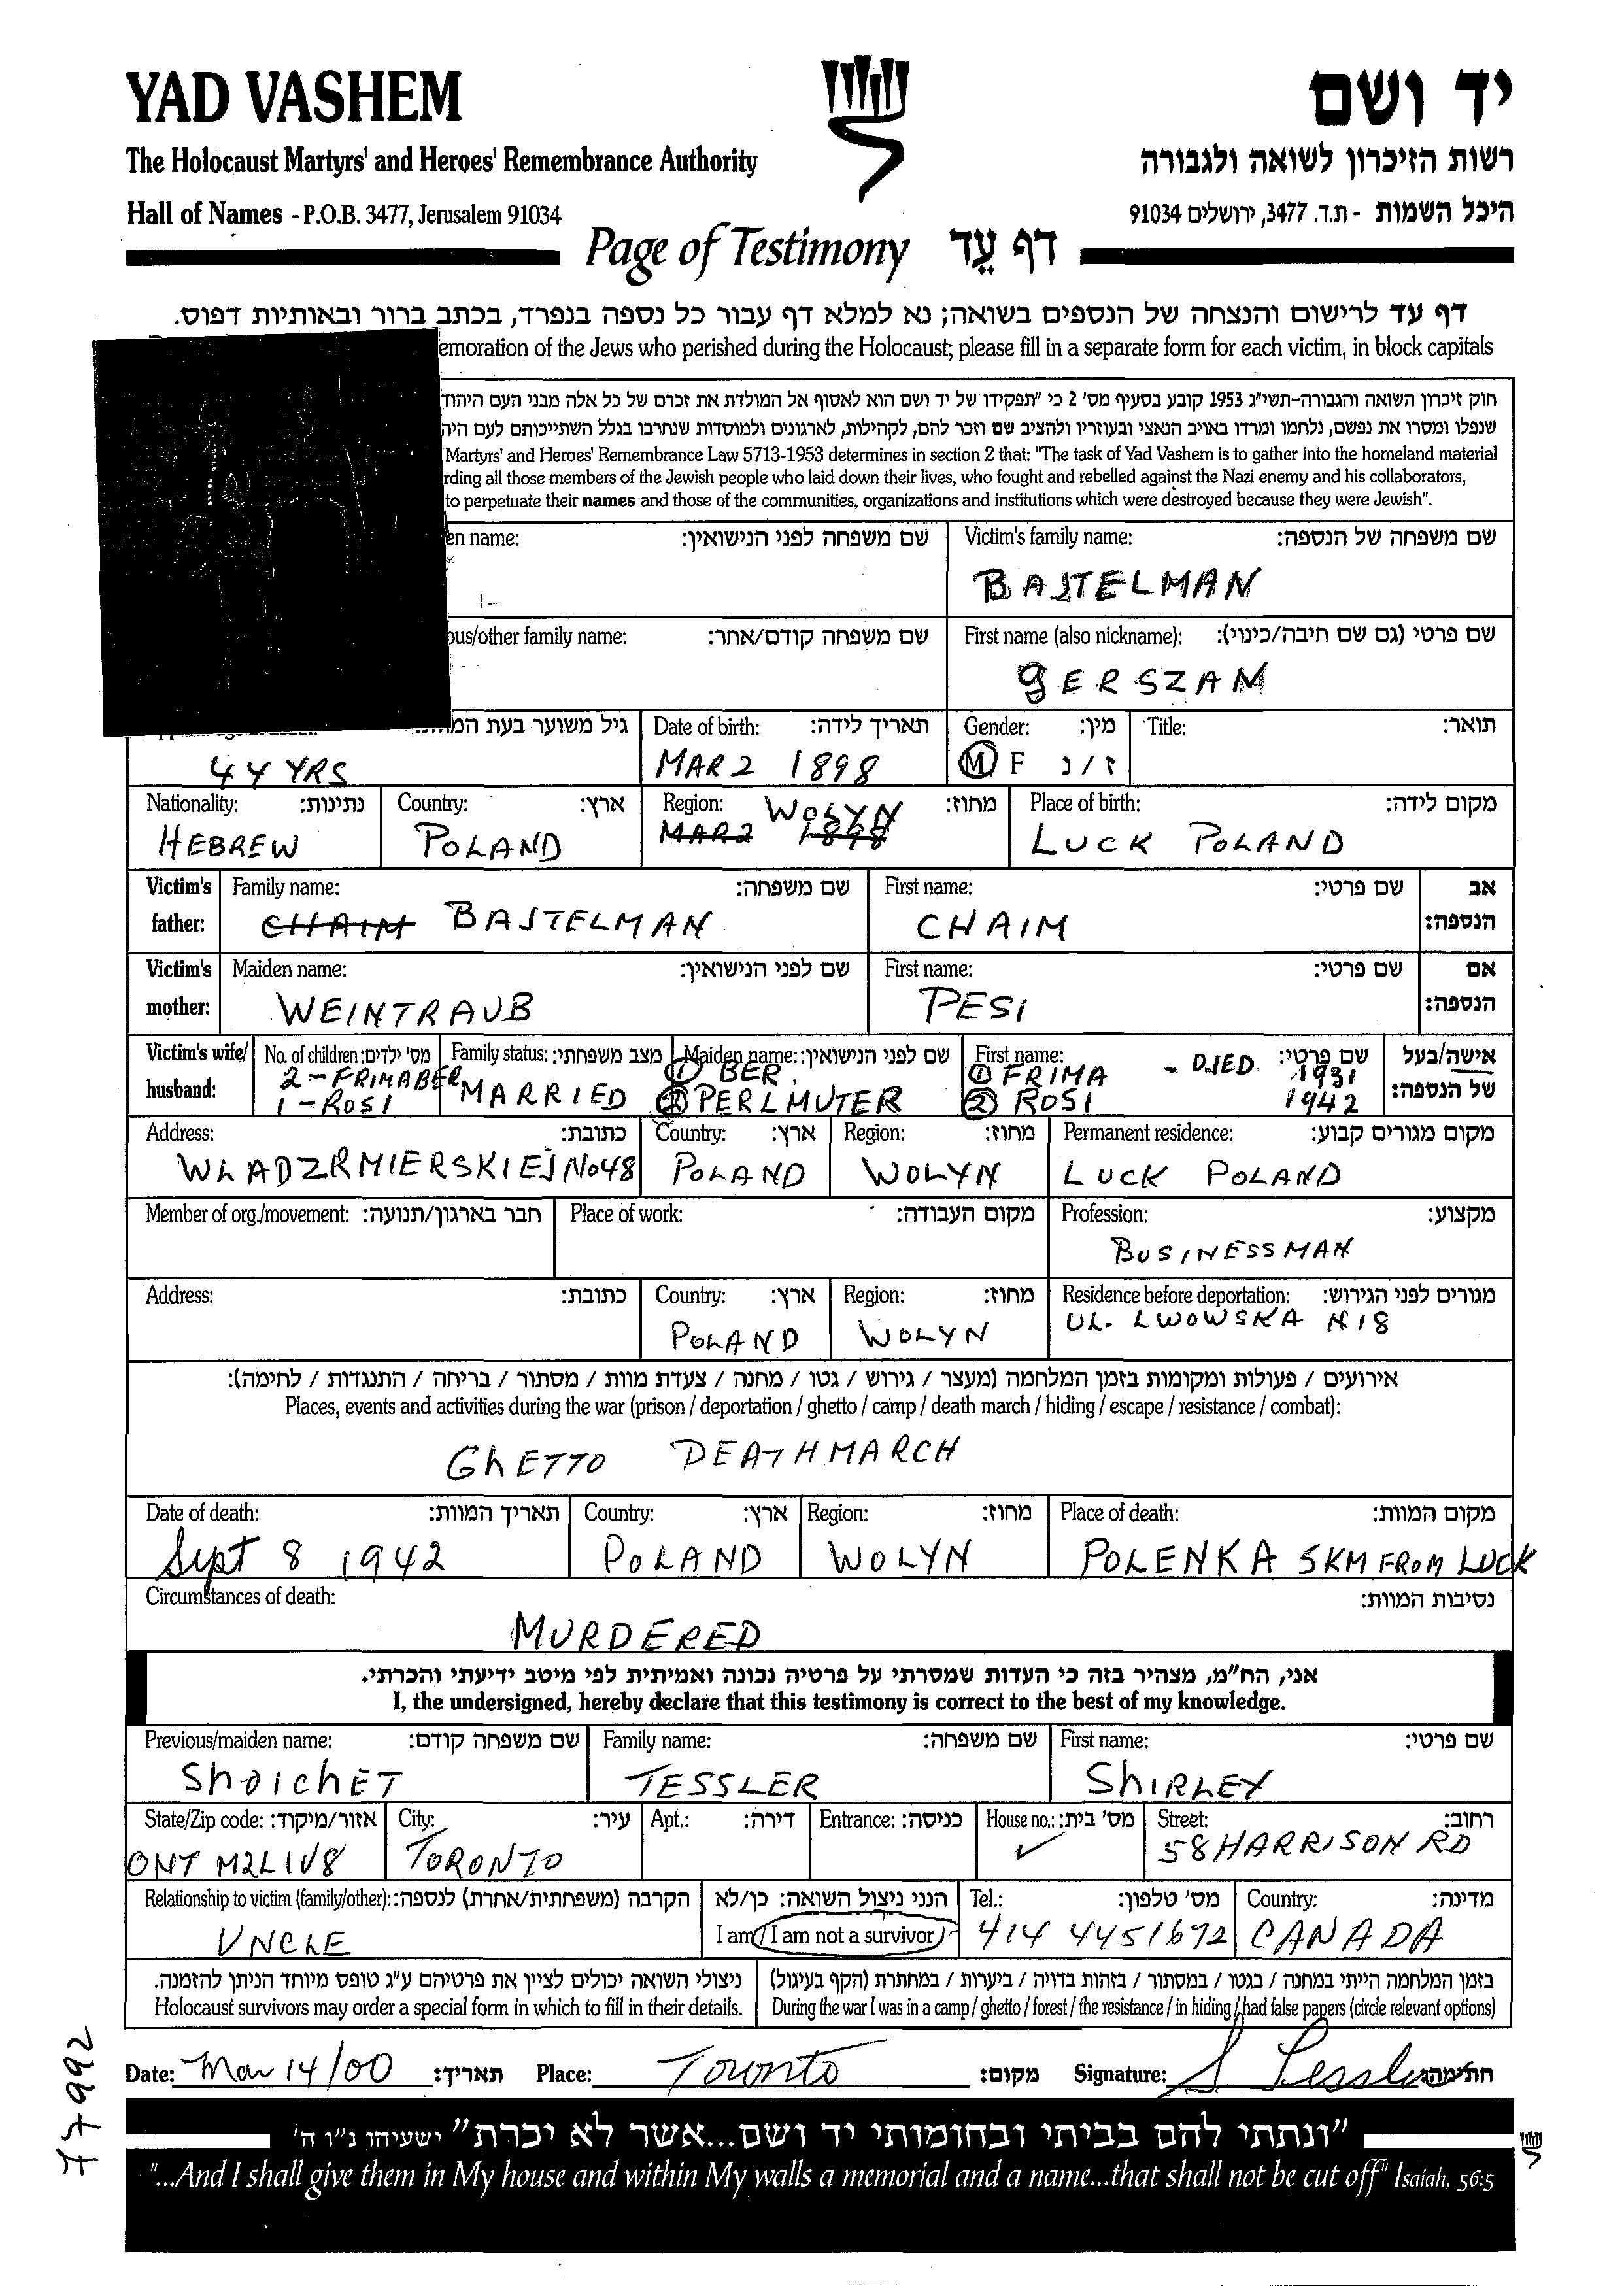 YAD VASHEM
יד ושם
The Holocaust Martyrs' and Heroes' Remembrance Authority
רשות הזיכרון לשואה ולגבורה
Hall of Names - P.O.B. 3477, Jerusalem 91034
היכל השמות - ת.ד. 3477, ירושלים 91034
Page of Testimony דף עֵד
דף עד לרישום והנצחה של הנספים בשואה; נא למלא דף עבור כל נספה בנפרד, בכתב ברור ובאותיות דפוס.
emoration of the Jews who perished during the Holocaust; please fill in a separate form for each victim, in block capitals
חוק זיכרון השואה והגבורה-תשי"ג 1953 קובע בסעיף מס' 2 כי "תפקידו של יד ושם הוא לאסוף אל המולדת את זכרם של כל אלה מבני העם היהוד
שנפלו ומסרו את נפשם, נלחמו ומרדו באויב הנאצי ובעוזריו ולהציב שם וזכר להם, לקהילות, לארגונים ולמוסדות שנחרבו בגלל השתייכותם לעם היה
Martyrs' and Heroes' Remembrance Law 5713-1953 determines in section 2 that: "The task of Yad Vashem is to gather into the homeland material
rding all those members of the Jewish people who laid down their lives, who fought and rebelled against the Nazi enemy and his collaborators,
to perpetuate their names and those of the communities, organizations and institutions which were destroyed because they were Jewish".
en name: שם משפחה לפני הנישואין: Victim's family name: שם משפחה של הנספה:
BAJTELMAN
ous/other family name: שם משפחה קודם/אחר: First name (also nickname): שם פרטי (גם שם חיבה/כינוי):
GERSZAM
גיל משוער בעת המ Date of birth: תאריך לידה: Gender: מין: Title: תואר:
44 YRS MAR 2 1898 M F ז / נ
Nationality: נתינות: Country: ארץ: Region: מחוז: Place of birth: מקום לידה:
WOLYN
HEBREW POLAND MAR 2 1898 LUCK POLAND
Victim's Family name: שם משפחה: First name: שם פרטי: אב
father: CHAIM BAJTELMAN CHAIM הנספה:
Victim's Maiden name: שם לפני הנישואין: First name: שם פרטי: אם
mother: WEINTRAUB PESI הנספה:
Victim's wife/ No. of children: מס' ילדים: Family status: מצב משפחתי: Maiden name: שם לפני הנישואין: First name: שם פרטי: אישה/בעל
2 - FRIMABER 1 BER 1 FRIMA - DIED 1931
husband: 1 - ROSI MARRIED 2 PERLMUTER 2 ROSI 1942 של הנספה:
Address: כתובת: Country: ארץ: Region: מחוז: Permanent residence: מקום מגורים קבוע:
WLADZRMIERSKIEJ No 48 POLAND WOLYN LUCK POLAND
Member of org./movement: חבר בארגון/תנועה: Place of work: מקום העבודה: Profession: מקצוע:
BUSINESSMAN
Address: כתובת: Country: ארץ: Region: מחוז: Residence before deportation: מגורים לפני הגירוש:
POLAND WOLYN UL. LWOWSKA N 18
אירועים / פעולות ומקומות בזמן המלחמה (מעצר / גירוש / גטו / מחנה / צעדת מוות / מסתור / בריחה / התנגדות / לחימה):
Places, events and activities during the war (prison / deportation / ghetto / camp / death march / hiding / escape / resistance / combat):
GhETTO DEATHMARCH
Date of death: תאריך המוות: Country: ארץ: Region: מחוז: Place of death: מקום המוות:
Sept 8 1942 POLAND WOLYN POLENKA 5KM FROM LUCK
Circumstances of death: נסיבות המוות:
MURDERED
אני, הח"מ, מצהיר בזה כי העדות שמסרתי על פרטיה נכונה ואמיתית לפי מיטב ידיעתי והכרתי.
I, the undersigned, hereby declare that this testimony is correct to the best of my knowledge.
Previous/maiden name: שם משפחה קודם: Family name: שם משפחה: First name: שם פרטי:
ShOIChET TESSLER ShIRLEY
State/Zip code: אזור/מיקוד: City: עיר: Apt.: דירה: Entrance: כניסה: House no.: מס' בית: Street: רחוב:
ONT M2L1V8 TORONTO ✓ 58 HARRISON RD
Relationship to victim (family/other): הקרבה (משפחתית/אחרת) לנספה: הנני ניצול השואה: כן/לא Tel.: מס' טלפון: Country: מדינה:
UNCLE I am / I am not a survivor 414 4451692 CANADA
ניצולי השואה יכולים לציין את פרטיהם ע"ג טופס מיוחד הניתן להזמנה. בזמן המלחמה הייתי במחנה / בגטו / במסתור / בזהות בדויה / ביערות / במחתרת (הקף בעיגול)
Holocaust survivors may order a special form in which to fill in their details. During the war I was in a camp / ghetto / forest / the resistance / in hiding / had false papers (circle relevant options)
Date: Mar 14/00 תאריך: Place: Toronto מקום: Signature: S Tessler חתימה:
77992
"ונתתי להם בביתי ובחומותי יד ושם...אשר לא יכרת" ישעיהו נ"ו ה'
"...And I shall give them in My house and within My walls a memorial and a name...that shall not be cut off" Isaiah, 56:5